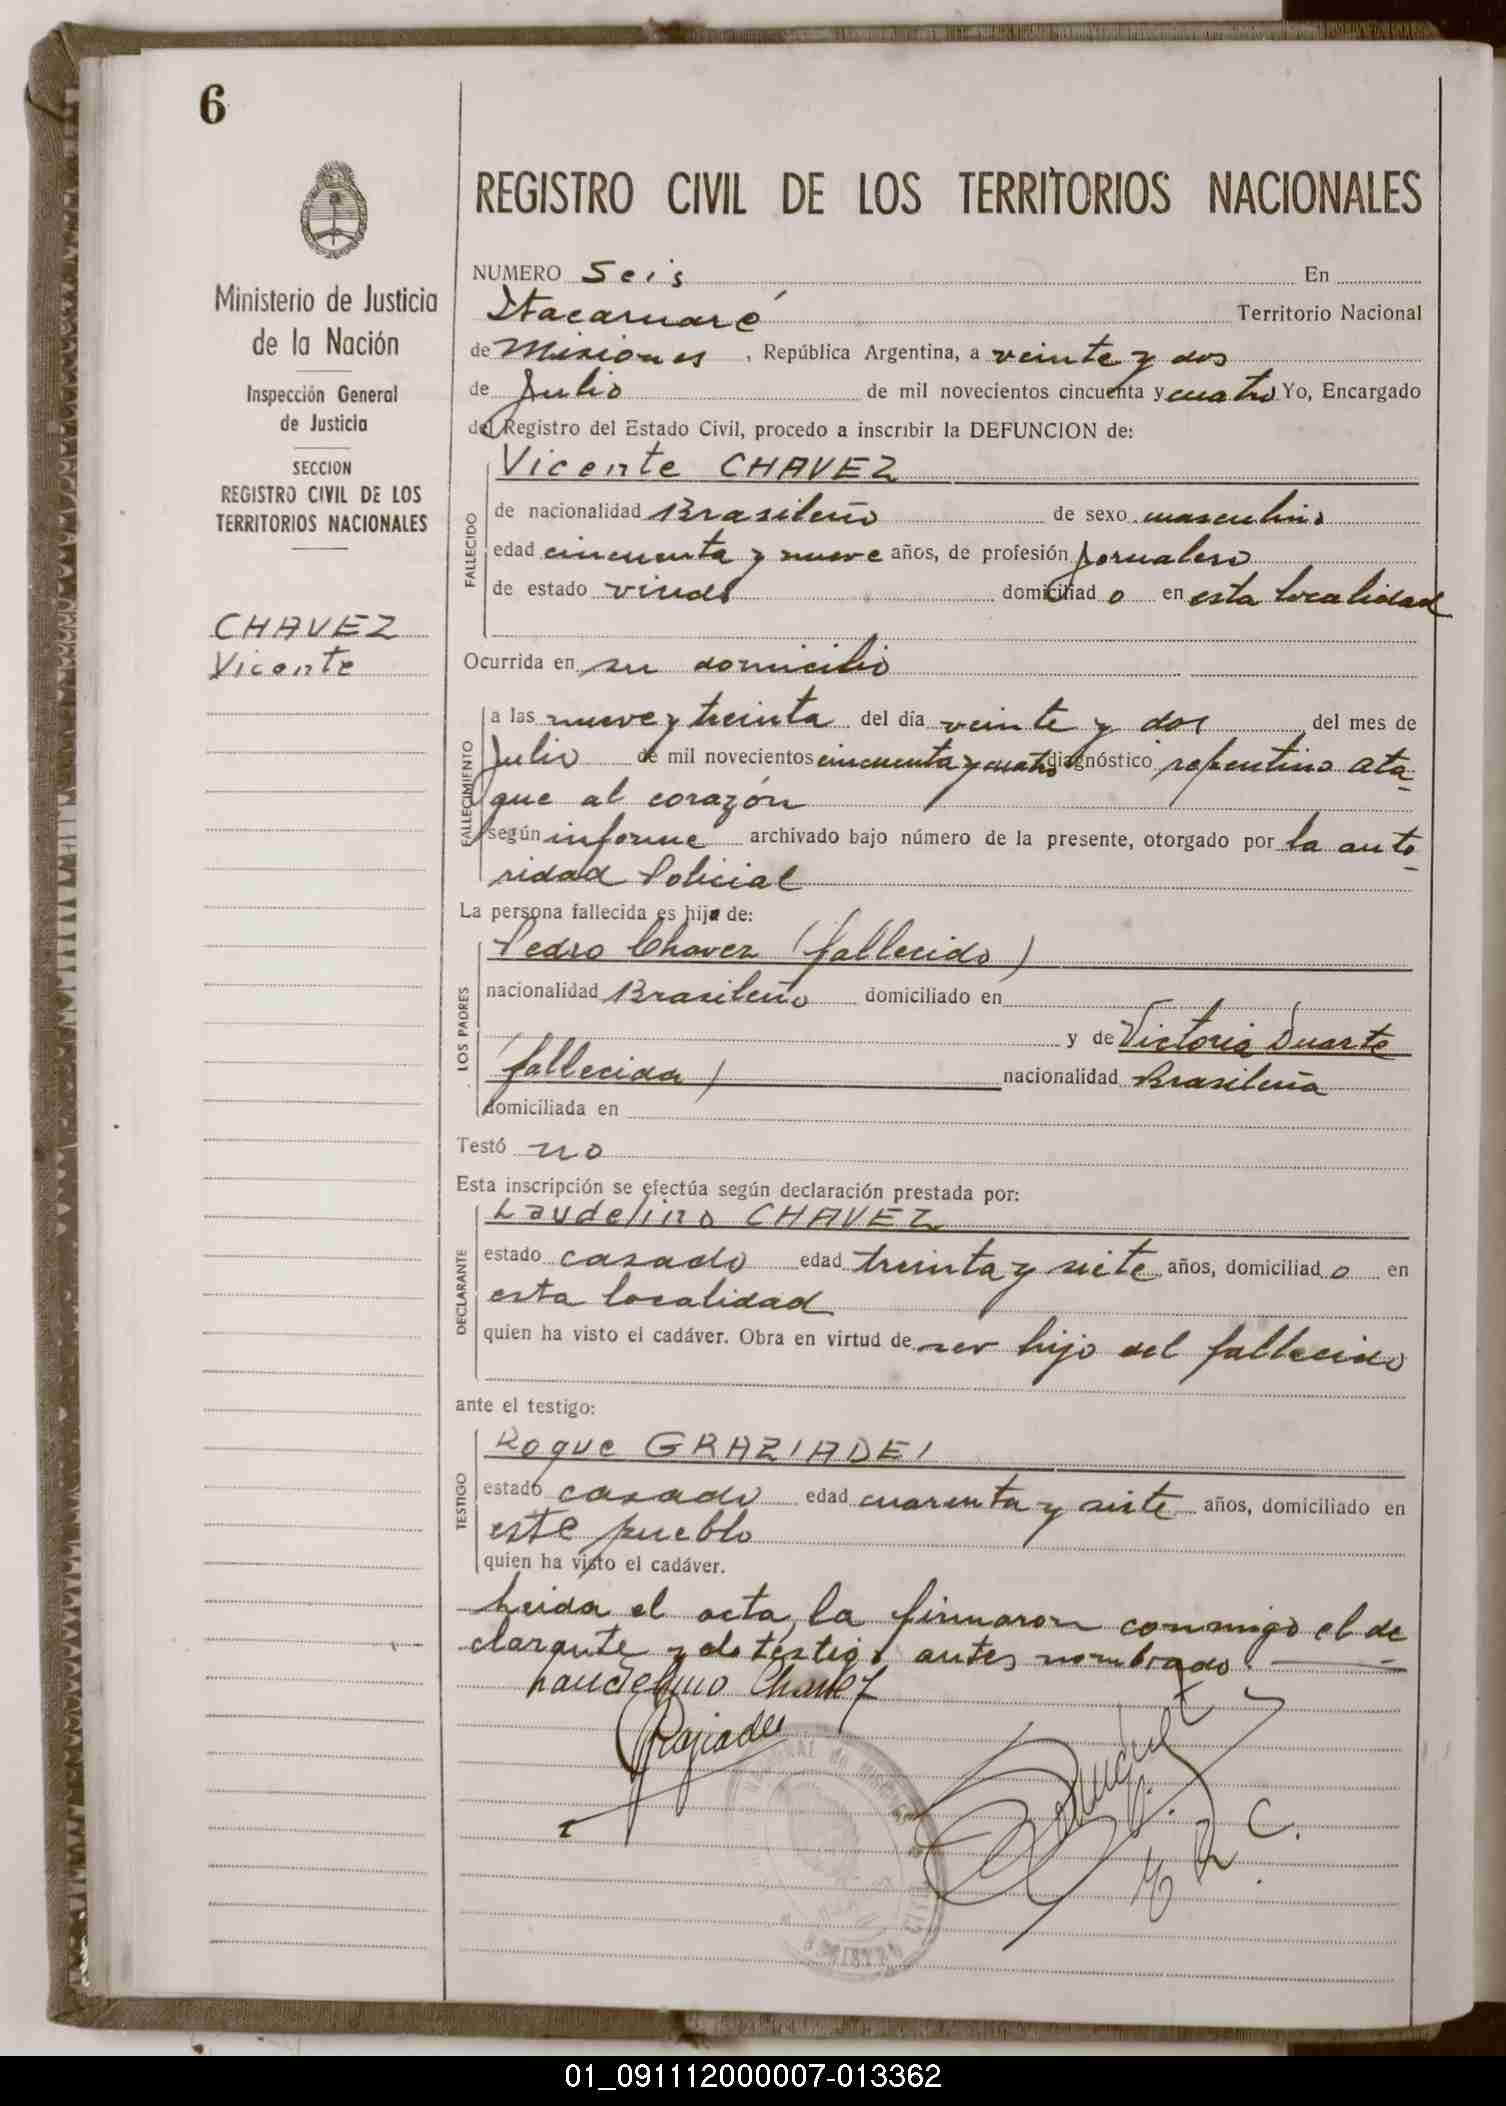 6
REGISTRO CIVIL DE LOS TERRITORIOS NACIONALES
Ministerio de Justicia
de la Nación
Inspección General
de Justicia
SECCION
REGISTRO CIVIL DE LOS
TERRITORIOS NACIONALES
CHAVEZ
Vicente
NUMERO Seis En
Itacaruaré Territorio Nacional
de Misiones, República Argentina, a veinte y dos
de Julio de mil novecientos cincuenta y cuatro Yo, Encargado
del Registro del Estado Civil, procedo a inscribir la DEFUNCION de:
FALLECIDO
Vicente CHAVEZ
de nacionalidad Brasileño de sexo masculino
edad cincuenta y nueve años, de profesión Jornalero
de estado viudo domiciliad o en esta localidad
Ocurrida en su domicilio
FALLECIMIENTO
a las nueve y treinta del día veinte y dos del mes de
Julio de mil novecientos cincuenta y cuatro diagnóstico repentino ata-
que al corazón
según informe archivado bajo número de la presente, otorgado por la auto-
ridad Policial
La persona fallecida es hijo de:
LOS PADRES
Pedro Chavez (fallecido)
nacionalidad Brasileño domiciliado en
y de Victoria Duarte
(fallecida) nacionalidad Brasileña
domiciliada en
Testó no
Esta inscripción se efectúa según declaración prestada por:
DECLARANTE
Laudelino CHAVEZ
estado casado edad treinta y siete años, domiciliad o en
esta localidad
quien ha visto el cadáver. Obra en virtud de ser hijo del fallecido
ante el testigo:
TESTIGO
Roque GRAZIADEI
estado casado edad cuarenta y siete años, domiciliado en
este pueblo
quien ha visto el cadáver.
Leida el acta, la firmaron conmigo el de-
clarante y el testigo antes nombrado.
Laudelino Chavez
E. R. C.
01_091112000007-013362